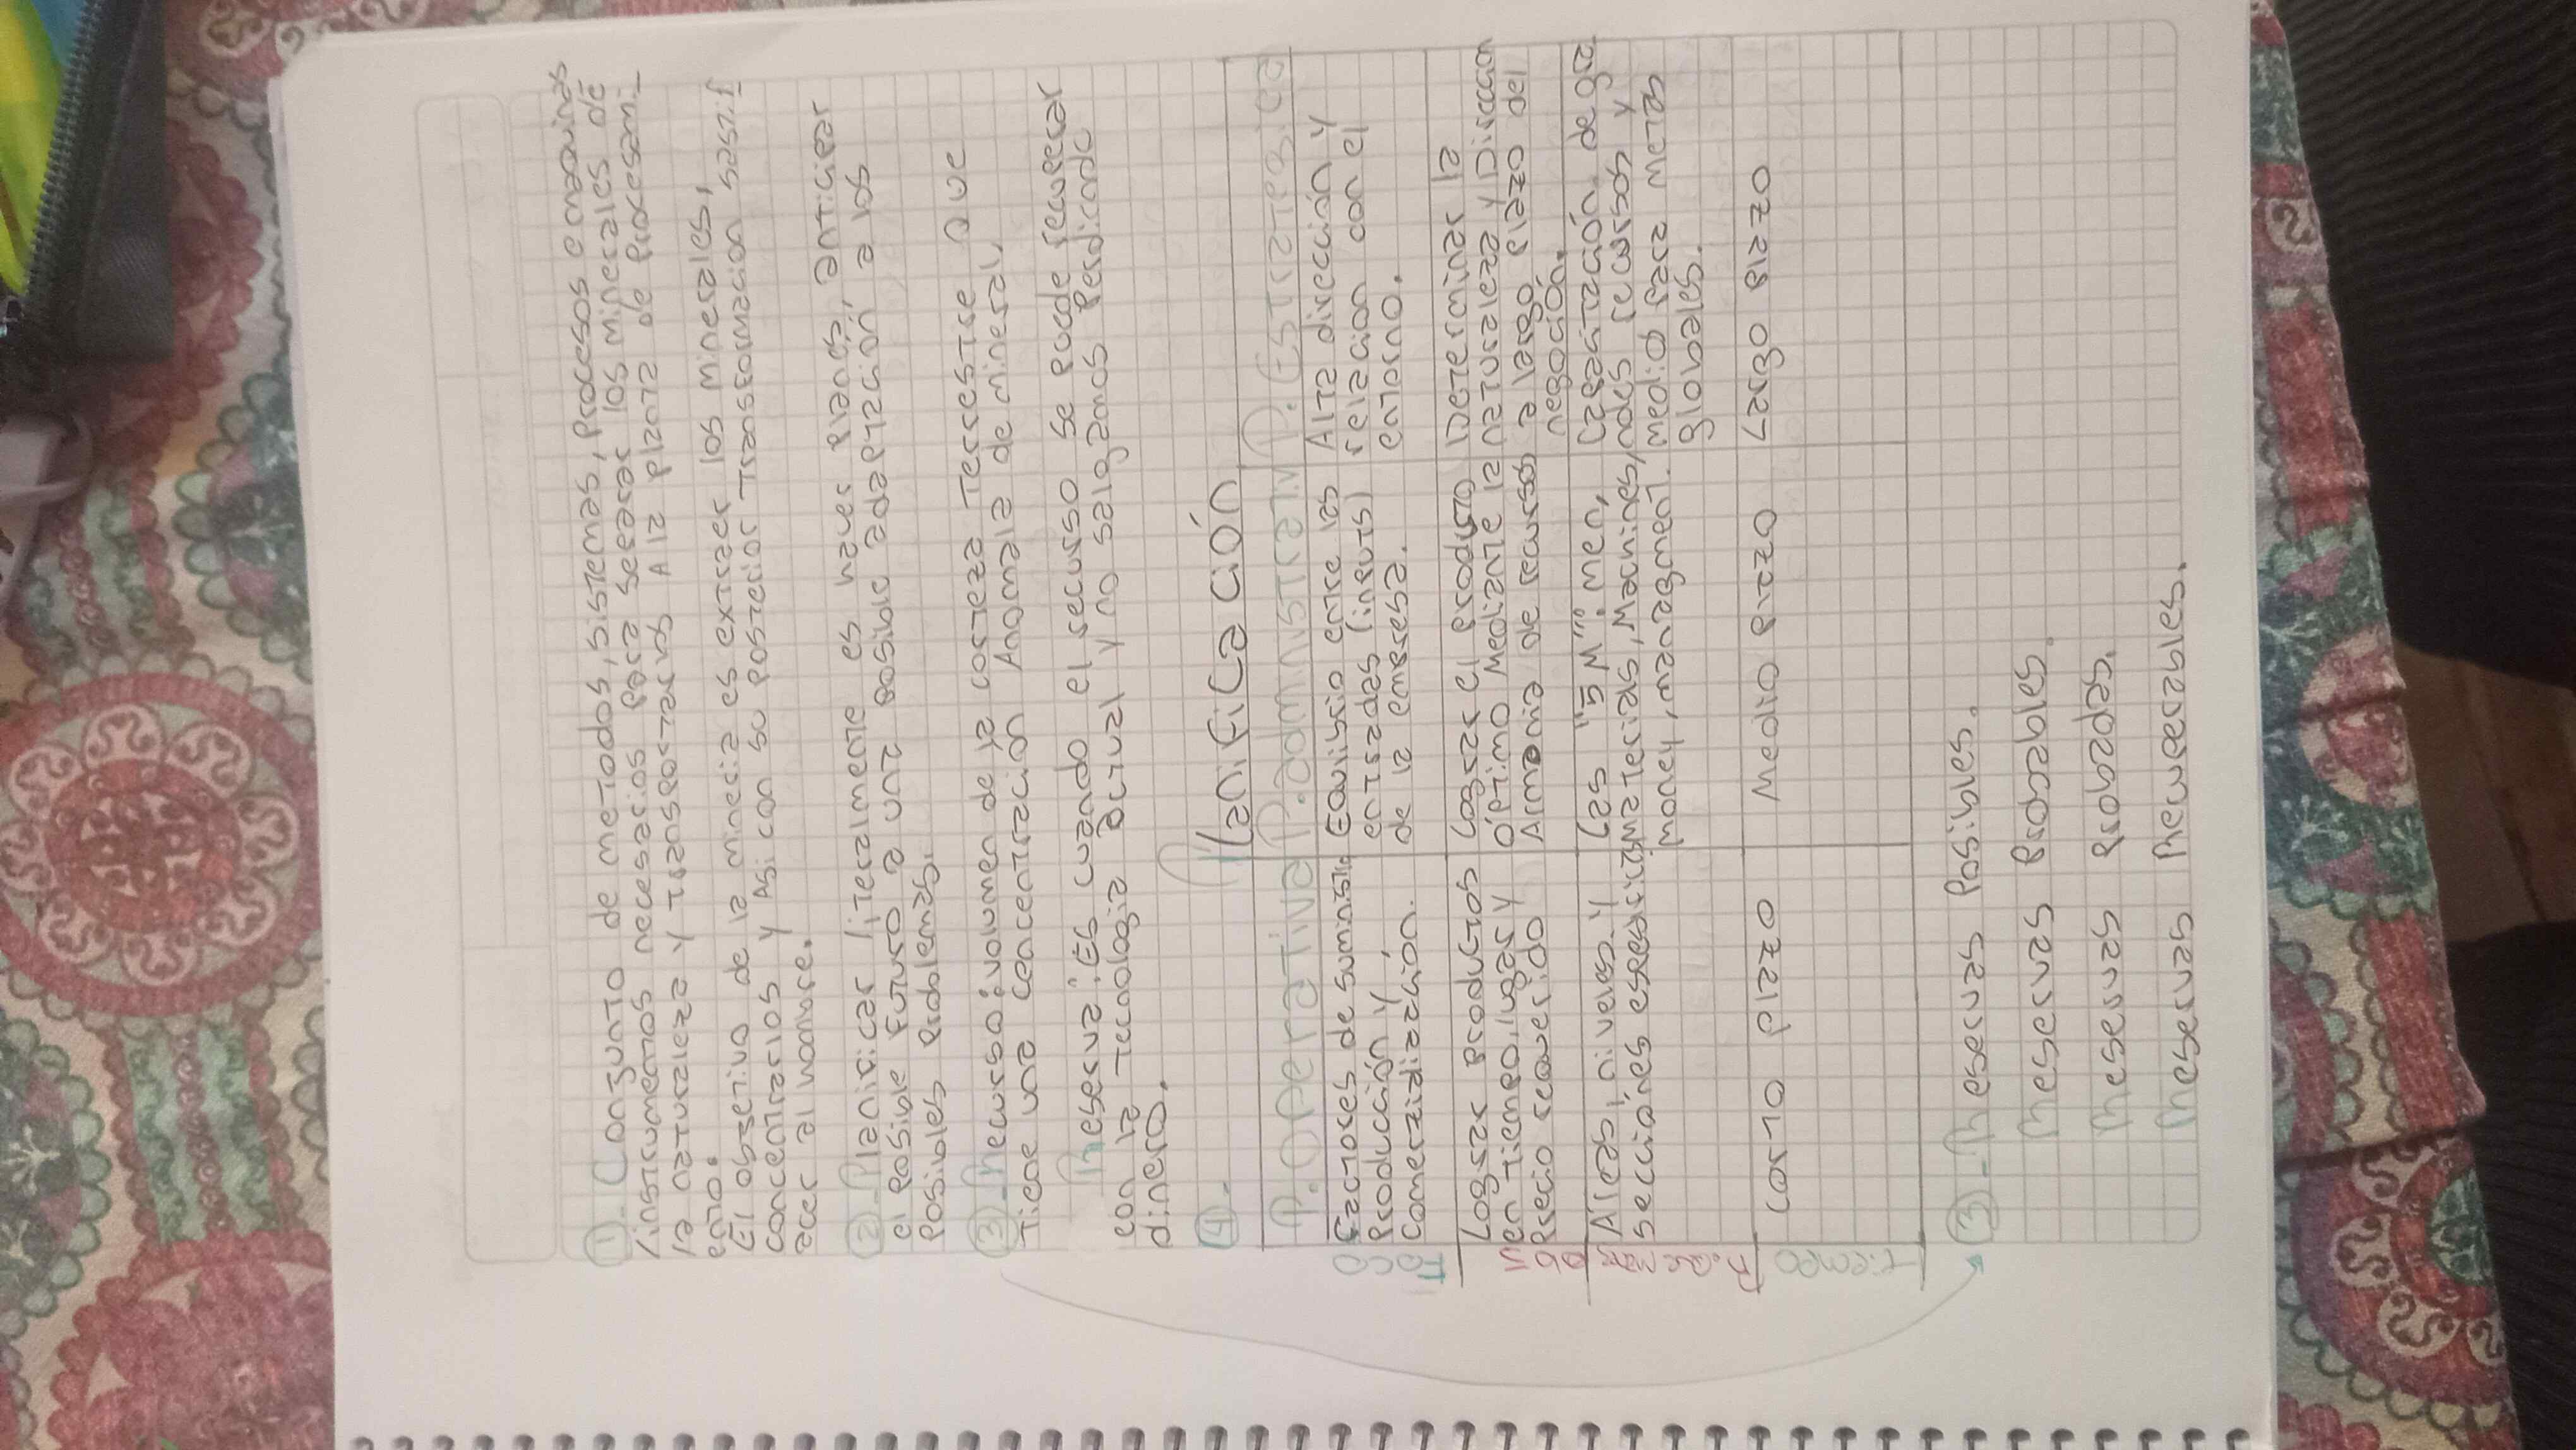 ① Conjunto de metodos, sistemas, procesos e maquinas
/instrumentos necesarios para separar los minerales de
la naturaleza y transportarlos A la planta de procesami_
ento.
El objetivo de la mineria es extraer los minerales,
concentrarlos y Asi con su posterior transformación sastif
acer al hombre.
②-Planificar literalmente es haver planes, anticipar
el posible futuro a una posible adaptación a los
posibles problemas.
③-Recurso: volumen de la corteza terrestre que
tiene una concentración Anomala de mineral.
Reserva: Es cuando el recurso se puede recuperar
con la tecnologia actual y no salgamos perdiendo
dinero.
④. Planificación
P. Operativa P. admnistrativ P. Estrategica
Foco
Factores de suministro Equilibrio entre las Alta dirección y
Producción y entradas (inputs) relación con el
Comerzialización. de la empresa. entorno.
obj
Lograr productos Lograr el producto Determinar la
en tiempo, lugar y óptimo mediante la naturaleza y Direccion
Precio requerido Armonia de recursos a largo plazo del
negoción.
Areas, niveles y Las "5 M": men, Capacitación de gra
secciónes especificas materials, Machines, ndes recursos y
money, managment. medio para metas
globales.
tiempo
corto plazo Medio plazo Largo plazo
③- Reservas Posibles.
Reservas Probables.
Reservas Probadas.
Reservas Recuperables.